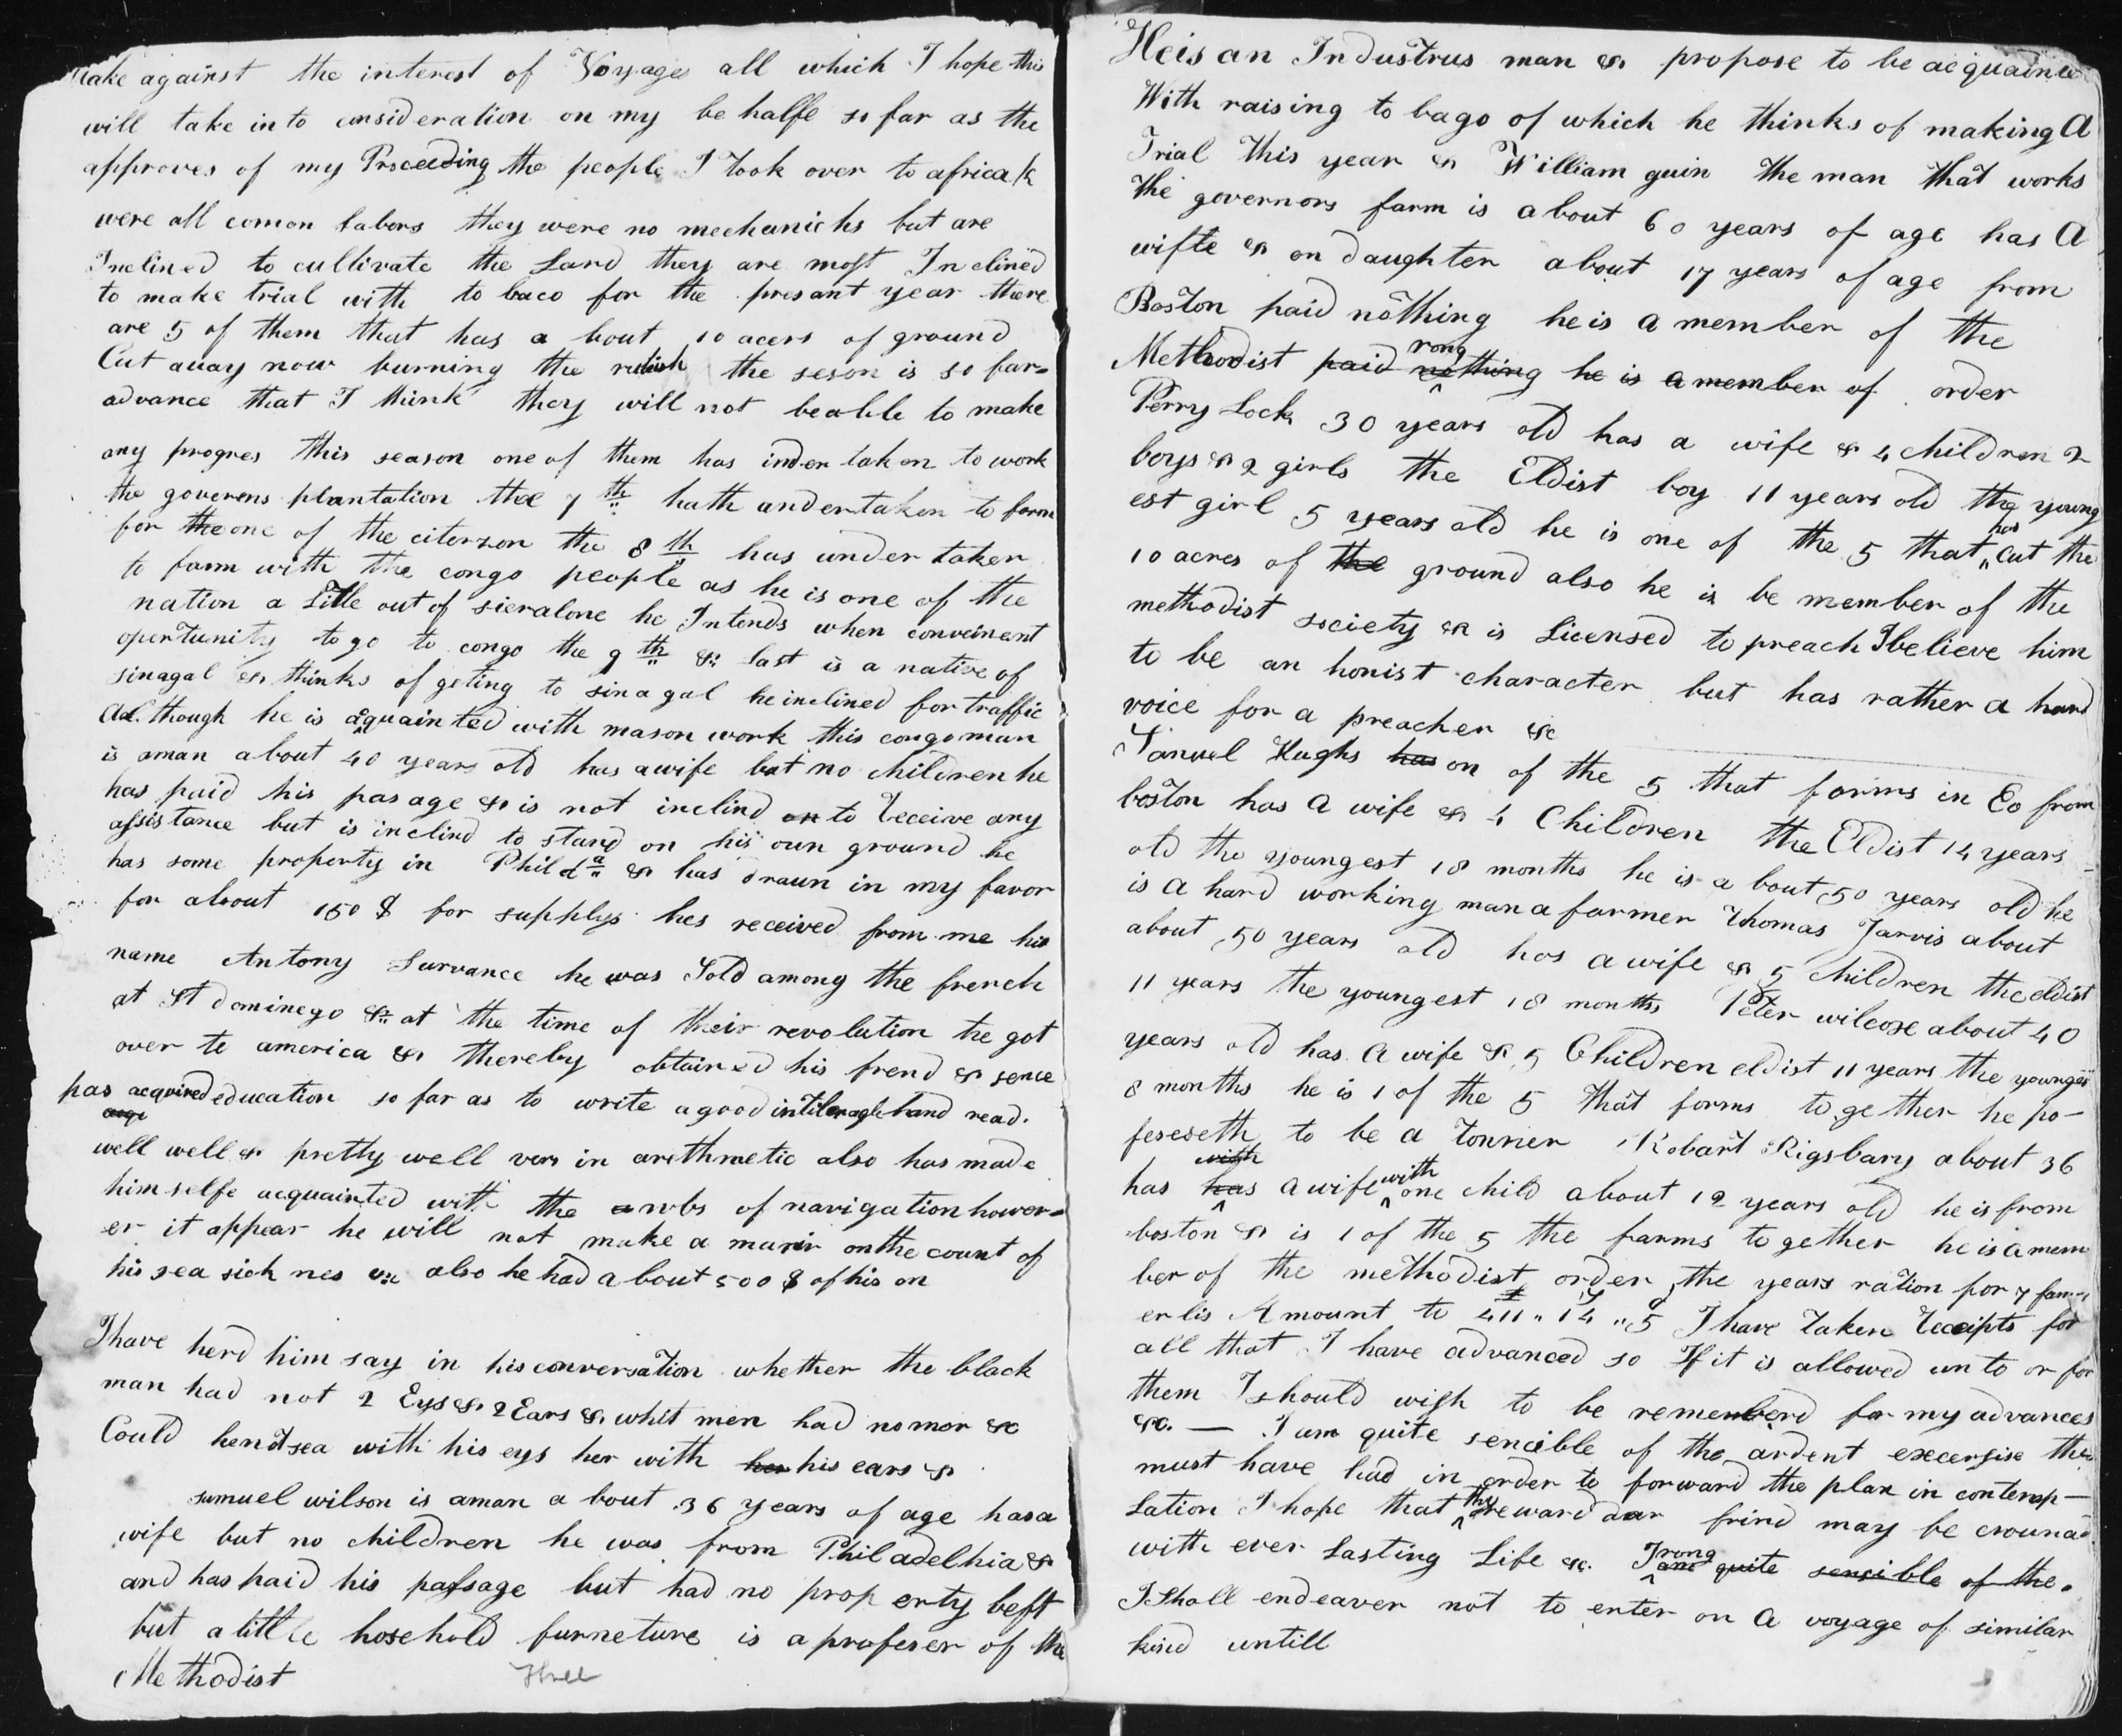 take against the interest of Voyages all which I hope this
will take in to consideration on my be halfe so far as the
approves of my Proceeding the people I took over to africa
were all comon labors they were no mechanichs but are
Inclined to cultivate the Land they are most Inclined
to make trial with to baco for the presant year there
are 5 of them that has a bout 10 acers of ground
Cut auay now burning the rubish the seson is so far=
advance that I think they will not beable to make
any progres this season one of them has inder taken to work
the goverens plantation the 7th hath undertaken to farm
for the one of the citerzon the 8th has under taken
to farm with the congo people as he is one of the
nation a Little out of sieralone he Intends when conveinent
opertunity to go to congo the 9th & last is a native of
sinagal & thinks of geting to sinagal he inclined for traffic
Al though he is acquainted with mason work this congoman
is aman about 40 years old has awife but no children he
has paid his pasage & is not inclind to receive any
assistance but is inclind to stand on his oun ground he
has some property in Philda & has draun in my favor
for about 150 $ for supplys hes received from me his
name Antony Survance he was Sold among the french
at St dominego & at the time of their revolution he got
over to america & thereby obtained his frend & sence
has acquired education so far as to write a good intileragle hand read.
well well & pretty well vers in arethmetic also has made
him selfe acquainted with the arobs of navigation howev=
er it appear he will not make a marir on the count of
his sea sick nes &c also he had about 500 $ of his on
I have herd him say in his conversation whether the black
man had not 2 Eys & 2 Ears & whit men had no mor &c
Could he not sea with his eys her with her his ears &
samuel wilson is aman a bout 36 years of age has a
wife but no children he was from Philadelhia &
and has paid his passage but had no property left
but a little hosehold furneture is a profeser of the
Methodist
Heis an Industrus man & propose to be acquainte
With raising to bago of which he thinks of making A
Trial This year & William guin the man that works
The governors farm is about 60 years of age has A
wifte & on daughter about 17 years of age from
Boston paid nothing he is a member of the
Methodist paid rong nothing he is a member of order
Perry Lock 30 years old has a wife & 4 children 2
boys & 2 girls the Eldist boy 11 years old the young
est girl 5 years old he is one of the 5 that has Cut the
10 acres of the ground also he is be member of the
methodist society & is Licensed to preach I believe him
to be an honist character but has rather a hard
voice for a preacher &c
Samuel Hughs has on of the 5 that forms in Co from
boston has a wife & 4 Children the Eldist 14 years
old the youngest 18 months he is a bout 50 years old he
is a hard working man a farmer Thomas Jarvis about
about 50 years old has a wife & 5 children the eldist
11 years the youngest 18 months Peter wilcox about 40
years old has A wife & 5 Children eldist 11 years the younges
8 months he is 1 of the 5 that forms to ge ther he po-
feseseth to be a Tonner Robart Rigsbary about 36
has with has a wife with one child about 12 years old he is from
boston & is 1 of the 5 the farms to gether he is a mem
ber of the methodist order, the years ration for 7 fam-
erlis Amount to 411 " 14 " 5 I have Taken Receipts for
all that I have advanced so If it is allowed un to or for
them I should wish to be rememberd for my advances
&c. — I am quite sencible of the ardent excersise the
must have had in order to forward the plan in contemp-
lation I hope that thy reward dear frind may be crouna
with ever Lasting Life &c. I rong am quite sensible of the.
I Shall endeaver not to enter on A voyage of similar
kind untill